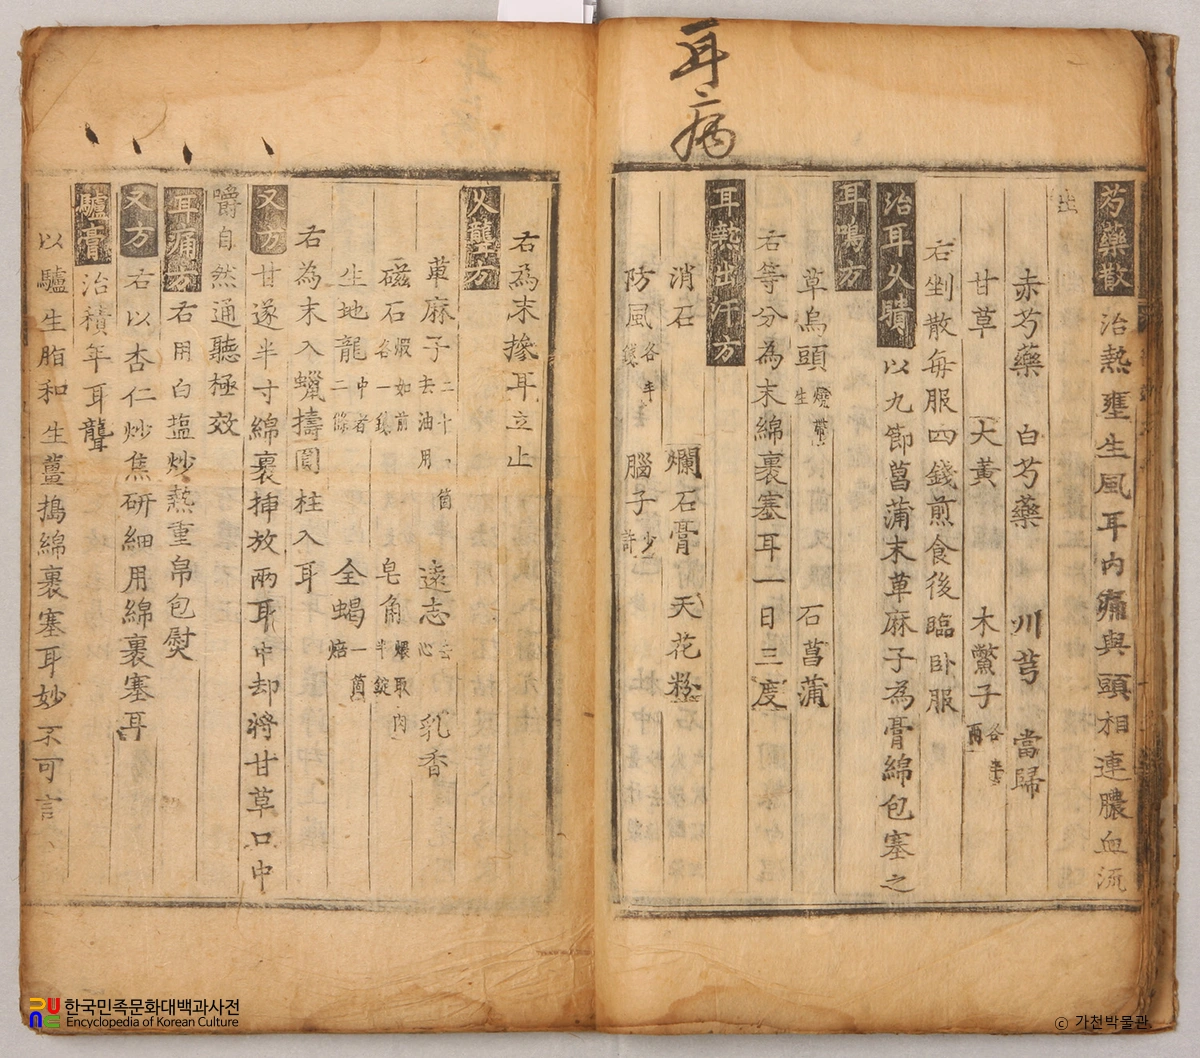 耳病
芍藥散治熱壅生風耳內痛與頭相連膿血流
出
赤芍藥 白芍藥 川芎 當歸
甘草 大黃 木鱉子各半兩
右剉散每服四錢煎食後臨卧服
治耳久聵以九節菖蒲末草麻子為膏綿包塞之
耳鳴方
草烏頭燒帶生 石菖蒲
右等分為末綿裹塞耳一日三度
耳乾出汗方
消石 爛石膏 天花粉
防風各半錢 腦子少許
右為末摻耳立止
久聾方
萆麻子二十一箇去油用 遠志去心 乳香
磁石煅如前各一錢 皂角煨取肉半錠
生地龍中者二條 全蝎一箇焙
右為末入蠟擣圓柱入耳
又方甘遂半寸綿裹揷放兩耳中却將甘草口中
嚼自然通聽極效
耳痛方右用白塩炒熱重帛包熨
又方右以杏仁炒焦研細用綿裹塞耳
驢膏治積年耳聾
以驢生脂和生薑搗綿裹塞耳妙不可言
한국민족문화대백과사전
Encyclopedia of Korean Culture
© 가천박물관